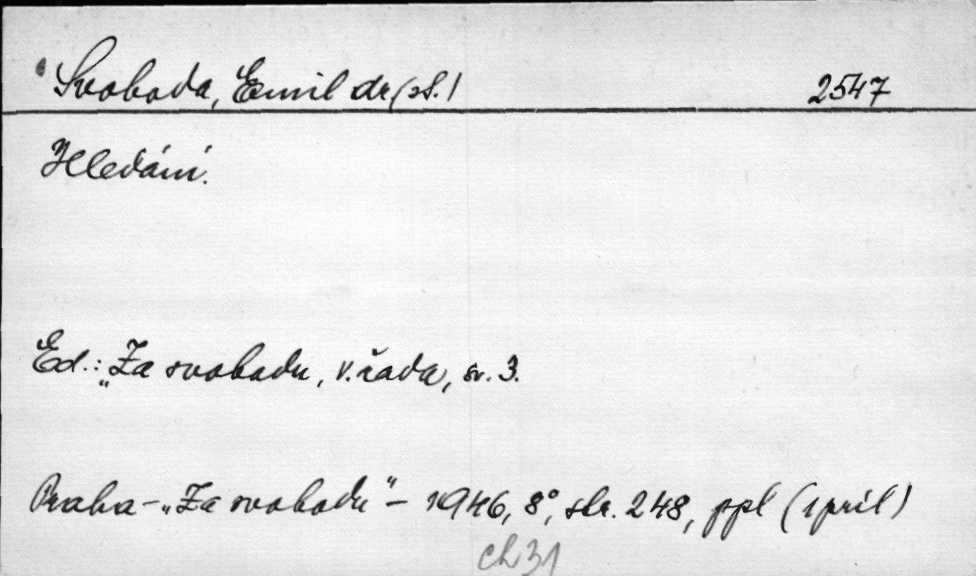 Svoboda, Emil dr (st.) 2547
Hledání.
Ed.: „Za svobodu, V. řada, sv. 3.
Praha – „Za svobodu“ – 1946, 8°, str. 248, ppl (1 příl)
ch 31